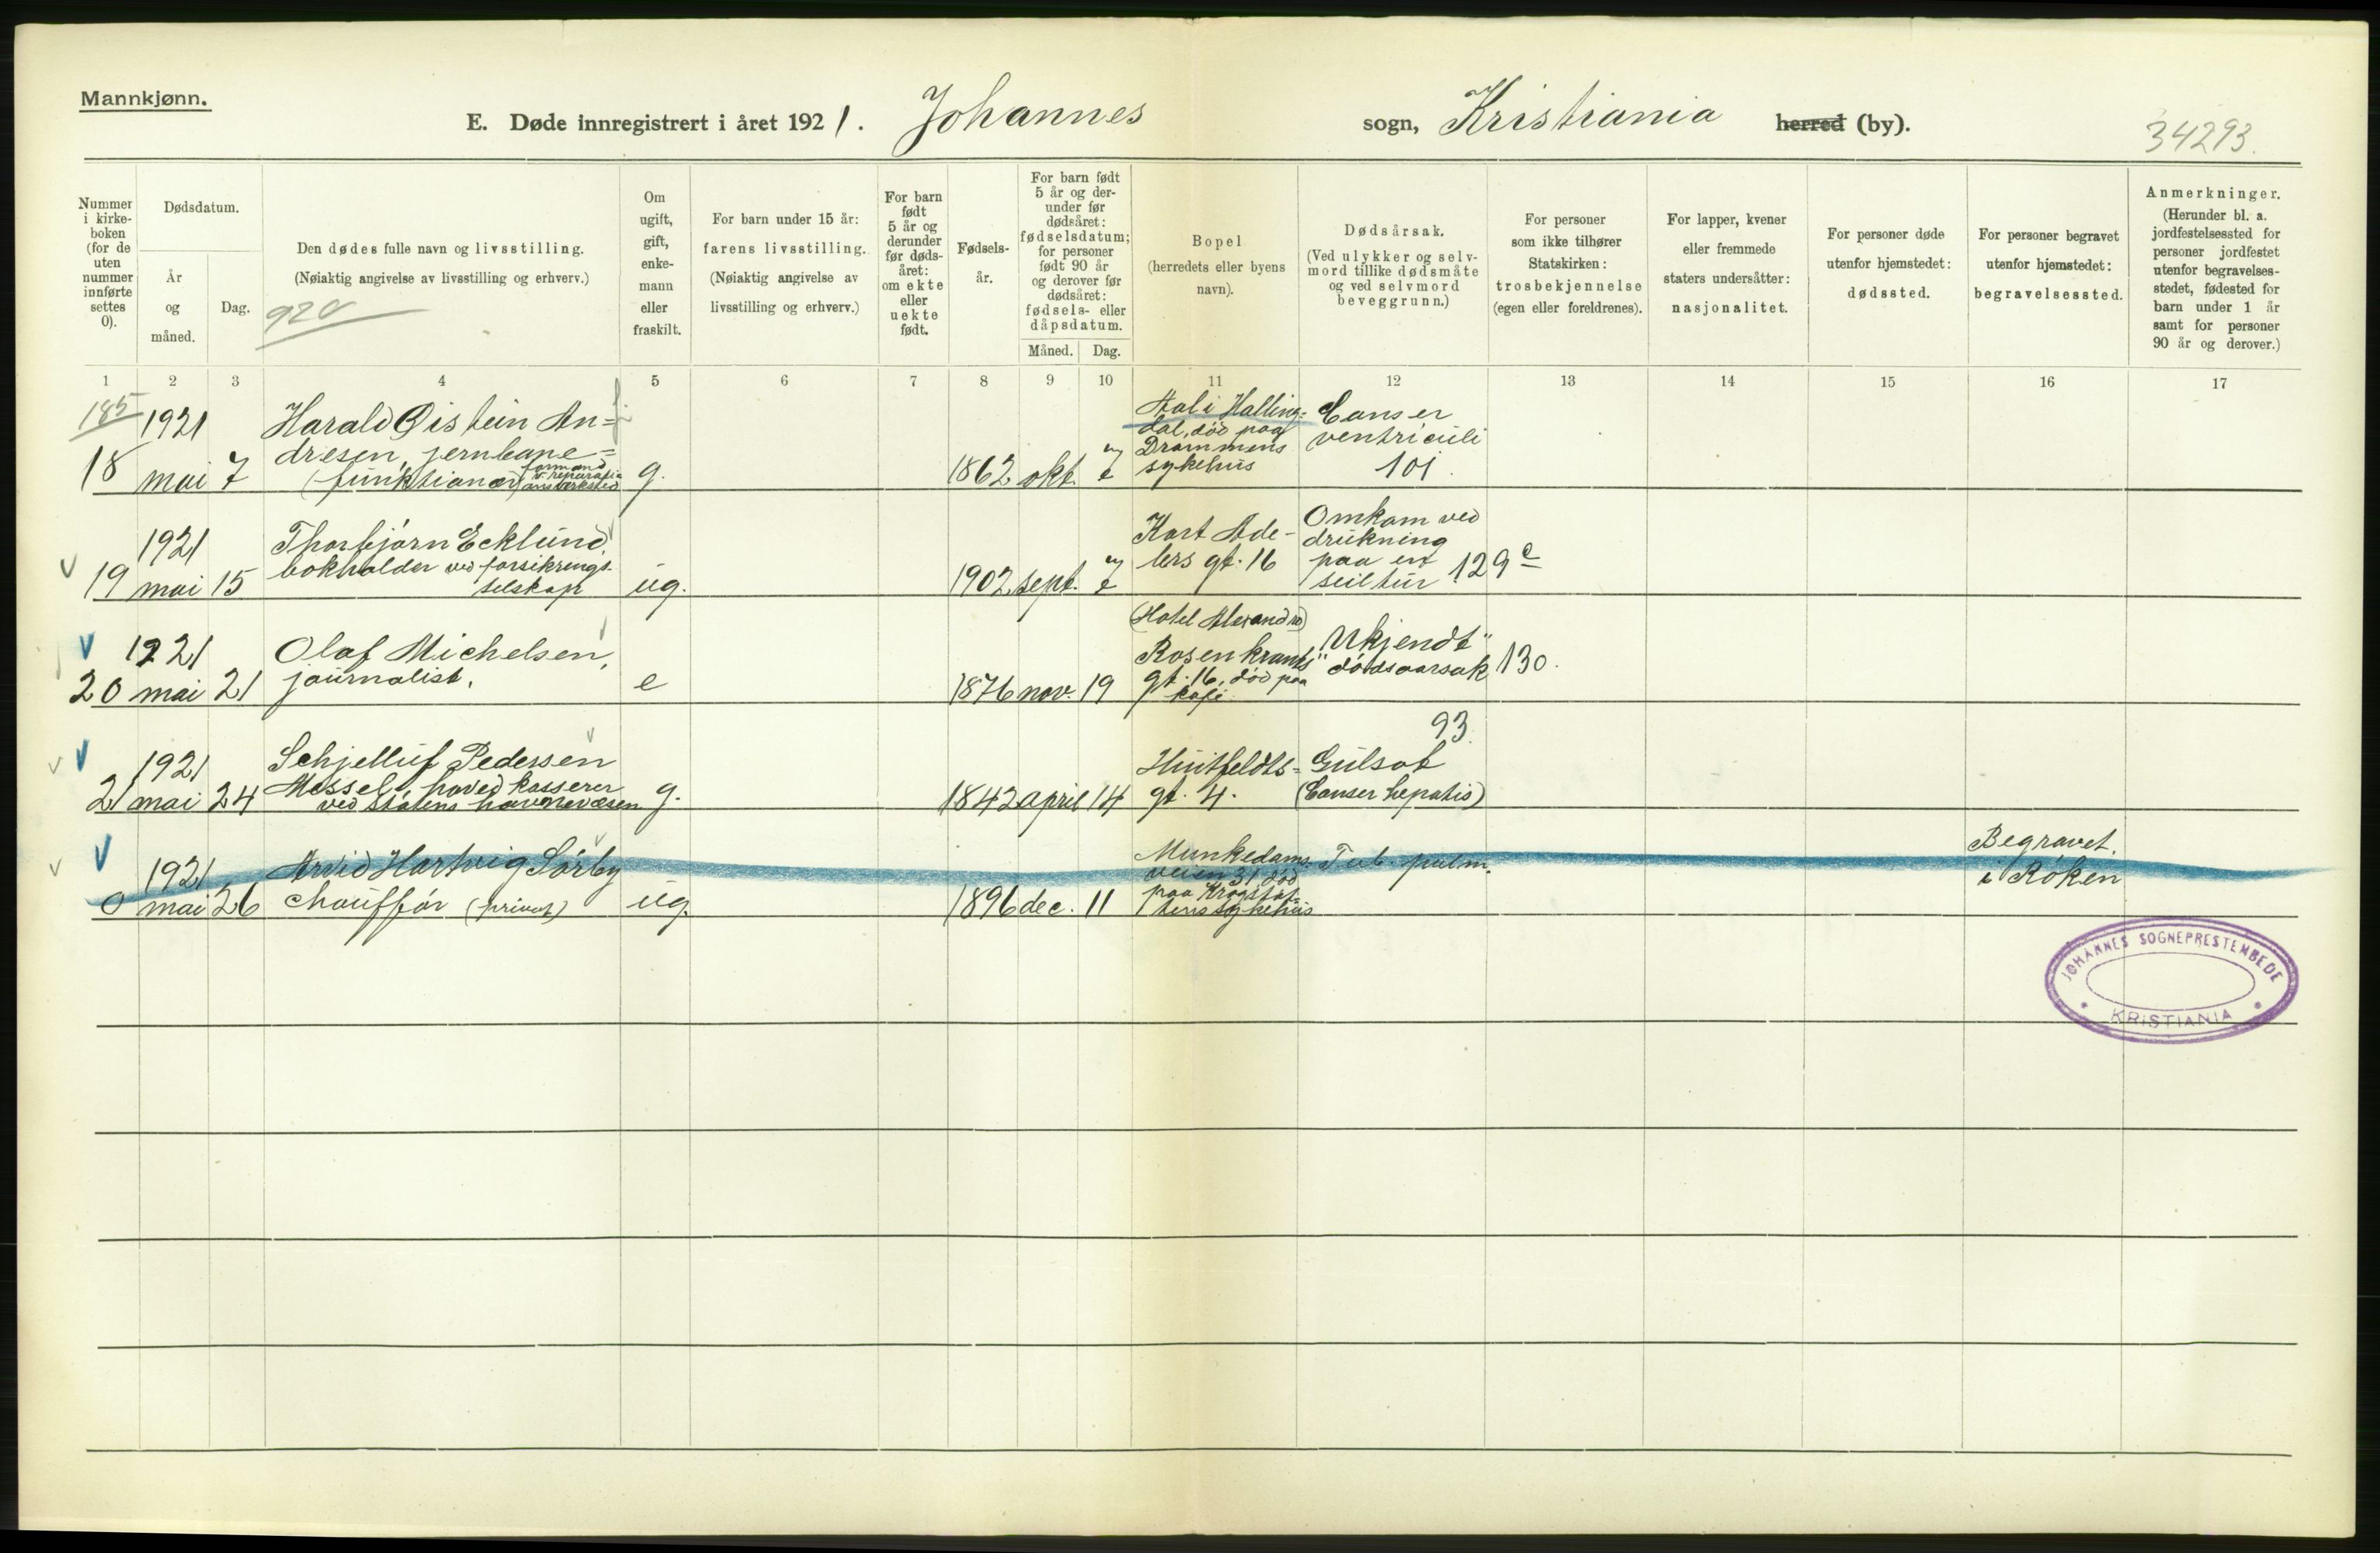 Mannkjønn.
E. Døde innregistrert i året 1921. Johannes sogn, Kristiania herred (by).
34293.
Nummer i kirke-boken (for de uten nummer innførte settes 0).
Dødsdatum.
År og måned.
Dag.
Den dødes fulle navn og livsstilling.
(Nøiaktig angivelse av livsstilling og erhverv.)
920
Om ugift, gift, enke-mann eller fraskilt.
For barn under 15 år:
farens livsstilling.
(Nøiaktig angivelse av livsstilling og erhverv.)
For barn født 5 år og derunder før døds-året: om ekte eller uekte født.
Fødsels-år.
For barn født 5 år og der-under før dødsåret: fødselsdatum; for personer født 90 år og derover før dødsåret: fødsels- eller dåpsdatum.
Måned.
Dag.
Bopel
(herredets eller byens navn).
Dødsårsak.
(Ved ulykker og selv-mord tillike dødsmåte og ved selvmord beveggrunn.)
For personer som ikke tilhører Statskirken: trosbekjennelse (egen eller foreldrenes).
For lapper, kvener eller fremmede staters undersåtter: nasjonalitet.
For personer døde utenfor hjemstedet: dødssted.
For personer begravet utenfor hjemstedet: begravelsessted.
Anmerkninger.
(Herunder bl. a. jordfestelsessted for personer jordfestet utenfor begravelses-stedet, fødested for barn under 1 år samt for personer 90 år og derover.)
1 2 3 4 5 6 7 8 9 10 11 12 13 14 15 16 17
185
18 1921 mai 7
Harald Øistein An=
dresen, jernbane=
(funktionær) formand v. reparasjonsverksted
g.
1862 okt.
Aal i Halling=
dal, død paa
Drammens
sykehus
Canser
ventriculi
101.
19 1921 mai 15
Thorbjørn Ecklund,
bokholder ved forsikrings-
selskap
ug.
1902 sept.
Kort Ade-
lers gt. 16
Omkom ved
drukning
paa en
seiltur 129 c
20 1921 mai 21
Olaf Michelsen,
journalist.
e
1876 nov. 19
(Hotel Alexandra)
Rosenkrantz
gt. 16, død paa
kafe.
"Ukjendt"
dødsaarsak 130.
21 1921 mai 24
Schjelluf Pedersen
Messel, hovedkasserer
ved Statens havnevæsen
g.
1842 april 14
Huitfeldts=
gt. 4.
93.
Gulsot
(Canser hepatis)
0 1921 mai 26
Arvid Hartvig Sørby
chauffør (privat)
ug.
1896 dec. 11
Munkedams-
veien 31 død
paa Krogstøt-
tens sykehus
Tub. pulm.
Begravet.
i Røken
JOHANNES SOGNEPRESTEMBEDE
KRISTIANIA